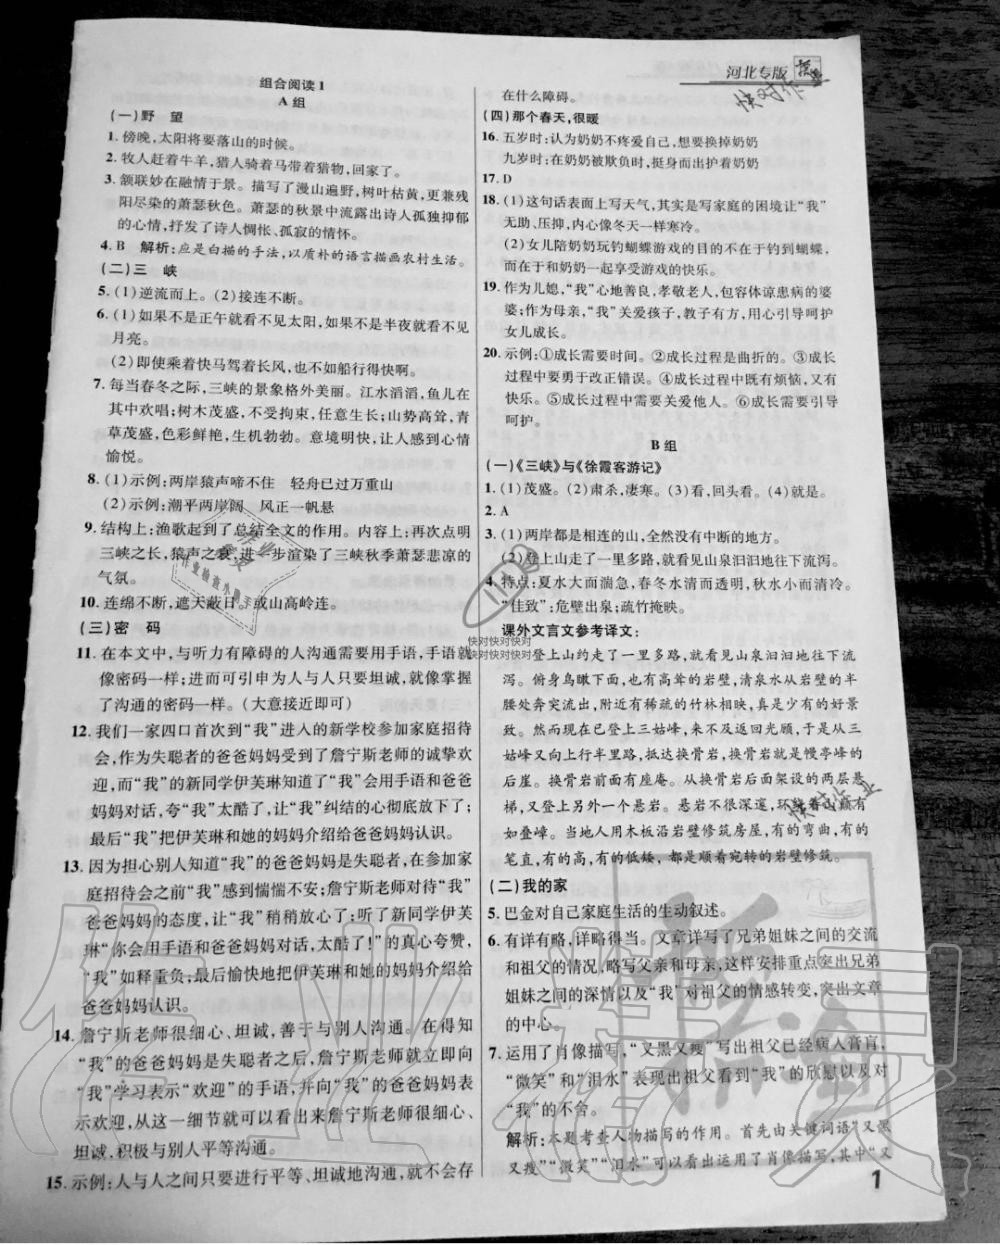 河北专版
快对作业
组合阅读 1
A 组
(一)野 望
1. 傍晚,太阳将要落山的时候。
2. 牧人赶着牛羊,猎人骑着马带着猎物,回家了。
3. 颔联妙在融情于景。描写了漫山遍野,树叶枯黄,更兼残
阳尽染的萧瑟秋色。萧瑟的秋景中流露出诗人孤独抑郁
的心情,抒发了诗人惆怅、孤寂的情怀。
4. B 解析:应是白描的手法,以质朴的语言描画农村生活。
(二)三 峡
5. (1)逆流而上。(2)接连不断。
6. (1)如果不是正午就看不见太阳,如果不是半夜就看不见
月亮。
(2)即使乘着快马驾着长风,也不如船行得快啊。
7. 每当春冬之际,三峡的景象格外美丽。江水滔滔,鱼儿在
其中欢唱;树木茂盛,不受拘束,任意生长;山势高耸,青
草茂盛,色彩鲜艳,生机勃勃。意境明快,让人感到心情
愉悦。
8. (1)示例:两岸猿声啼不住 轻舟已过万重山
(2)示例:潮平两岸阔 风正一帆悬
9. 结构上:渔歌起到了总结全文的作用。内容上:再次点明
三峡之长,猿声之哀,进一步渲染了三峡秋季萧瑟悲凉的
气氛。
10. 连绵不断,遮天蔽日。或山高岭连。
(三)密 码
11. 在本文中,与听力有障碍的人沟通需要用手语,手语就
像密码一样;进而可引申为人与人只要坦诚,就像掌握
了沟通的密码一样。(大意接近即可)
12. 我们一家四口首次到“我”进入的新学校参加家庭招待
会,作为失聪者的爸爸妈妈受到了詹宁斯老师的诚挚欢
迎,而“我”的新同学伊芙琳知道了“我”会用手语和爸爸
妈妈对话,夸“我”太酷了,让“我”纠结的心彻底放下了;
最后“我”把伊芙琳和她的妈妈介绍给爸爸妈妈认识。
13. 因为担心别人知道“我”的爸爸妈妈是失聪者,在参加家
庭招待会之前“我”感到惴惴不安;詹宁斯老师对待“我”
爸爸妈妈的态度,让“我”稍稍放松了;听了新同学伊芙
琳“你会用手语和爸爸妈妈对话,太酷了!”的真心夸赞,
“我”如释重负;最后愉快地把伊芙琳和她的妈妈介绍给
爸爸妈妈认识。
14. 詹宁斯老师很细心、坦诚,善于与别人沟通。在得知
“我”的爸爸妈妈是失聪者之后,詹宁斯老师就立即向
“我”学习表示“欢迎”的手语,并向“我”的爸爸妈妈表
示欢迎,从这一细节就可以看出来詹宁斯老师很细心、
坦诚,积极与别人平等沟通。
15. 示例:人与人之间只要进行平等、坦诚地沟通,就不会存
在什么障碍。
(四)那个春天,很暖
16. 五岁时:认为奶奶不疼爱自己,想要换掉奶奶
九岁时:在奶奶被欺负时,挺身而出护着奶奶
17. D
18. (1)这句话表面上写天气,其实是写家庭的困境让“我”
无助、压抑,内心像冬天一样寒冷。
(2)女儿陪奶奶玩钓蝴蝶游戏的目的不在于钓到蝴蝶,
而在于和奶奶一起享受游戏的快乐。
19. 作为儿媳,“我”心地善良,孝敬老人,包容体谅患病的婆
婆;作为母亲,“我”关爱孩子,教子有方,用心引导呵护
女儿成长。
20. 示例:①成长需要时间。②成长过程是曲折的。③成长
过程中要勇于改正错误。④成长过程中既有烦恼,又有
快乐。⑤成长过程中需要关爱他人。⑥成长需要引导
呵护。
B 组
(一)《三峡》与《徐霞客游记》
1. (1)茂盛。(2)肃杀,凄寒。(3)看,回头看。(4)就是。
2. A
3. (1)两岸都是相连的山,全然没有中断的地方。
(2)登上山走了一里多路,就看见山泉汩汩地往下流泻。
4. 特点:夏水大而湍急,春冬清澈而碧透,秋水小而清冷。
“佳致”:危壁出泉;疏竹掩映。
课外文言文参考译文:
快对快对快对
快对快对快对
登上山约走了一里多路,就看见山泉汩汩地往下流
泻。俯身鸟瞰下方,也有高耸的岩壁,清泉水从岩壁的半
腰处奔突流出,附近有稀疏的竹林相映,真是少有的好景
致。然而现在已登上三姑峰,来不及返回光顾,于是从三
姑峰又向上行半里多路,抵达换骨岩,换骨岩就是幔亭峰的
后崖。换骨岩前面有座庵。从换骨岩后面架设的两层悬
梯,又登上另外一个悬岩。悬岩不很深邃,环绕着山巅有
如叠嶂。当地人用木板沿岩壁修筑房屋,有的弯曲,有的
笔直,有的高,有的低矮,都是顺着宛转的岩壁修筑。
快对作业
(二)我的家
5. 巴金对自己家庭生活的生动叙述。
6. 有详有略,详略得当。文章详写了兄弟姐妹之间的交流
和祖父的情况,略写父亲和母亲,这样安排重点突出兄弟
姐妹之间的深情以及“我”对祖父的情感转变,突出文章
的中心。
7. 运用了肖像描写,“又黑又瘦”写出祖父已经病入膏肓,
“微笑”和“泪水”表现出祖父看到“我”的欣慰以及对
“我”的不舍。
解析:本题考查人物描写的作用。首先由关键词语“又黑
又瘦”“微笑”“泪水”可以看出运用了肖像描写,其中“又
1